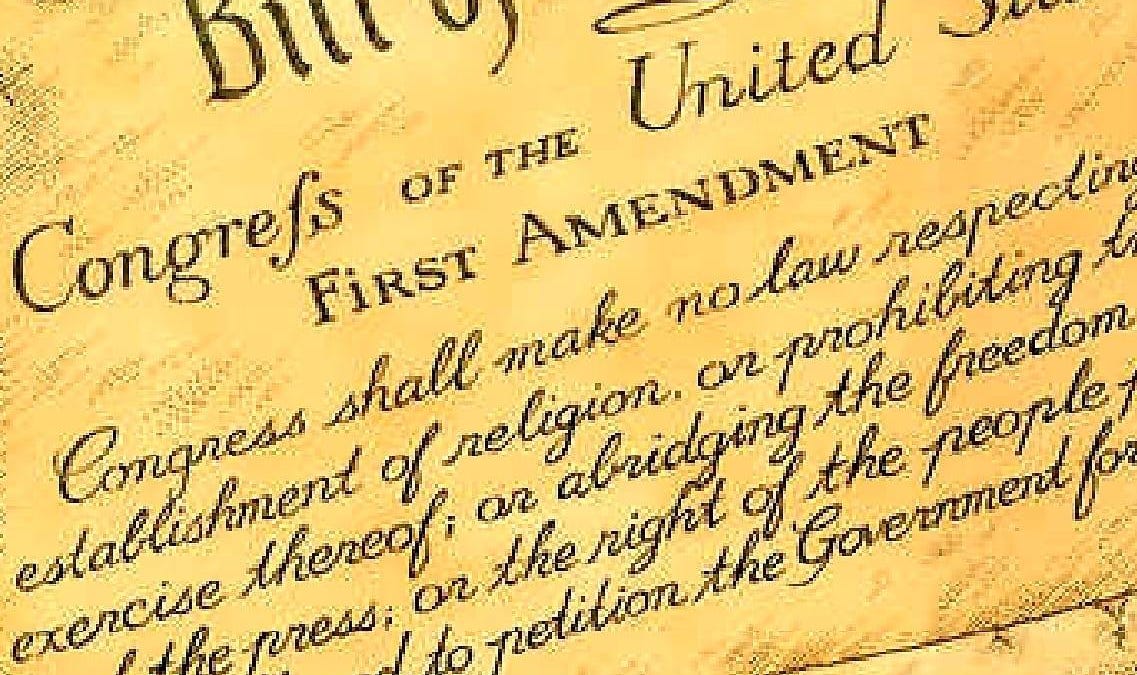 Bill of
Congreſs OF THE United
FIRST AMENDMENT
Congress shall make no law respecting
establishment of religion, or prohibiting
exercise thereof; or abridging the freedom
the press; or the right of the people
to petition the Government for